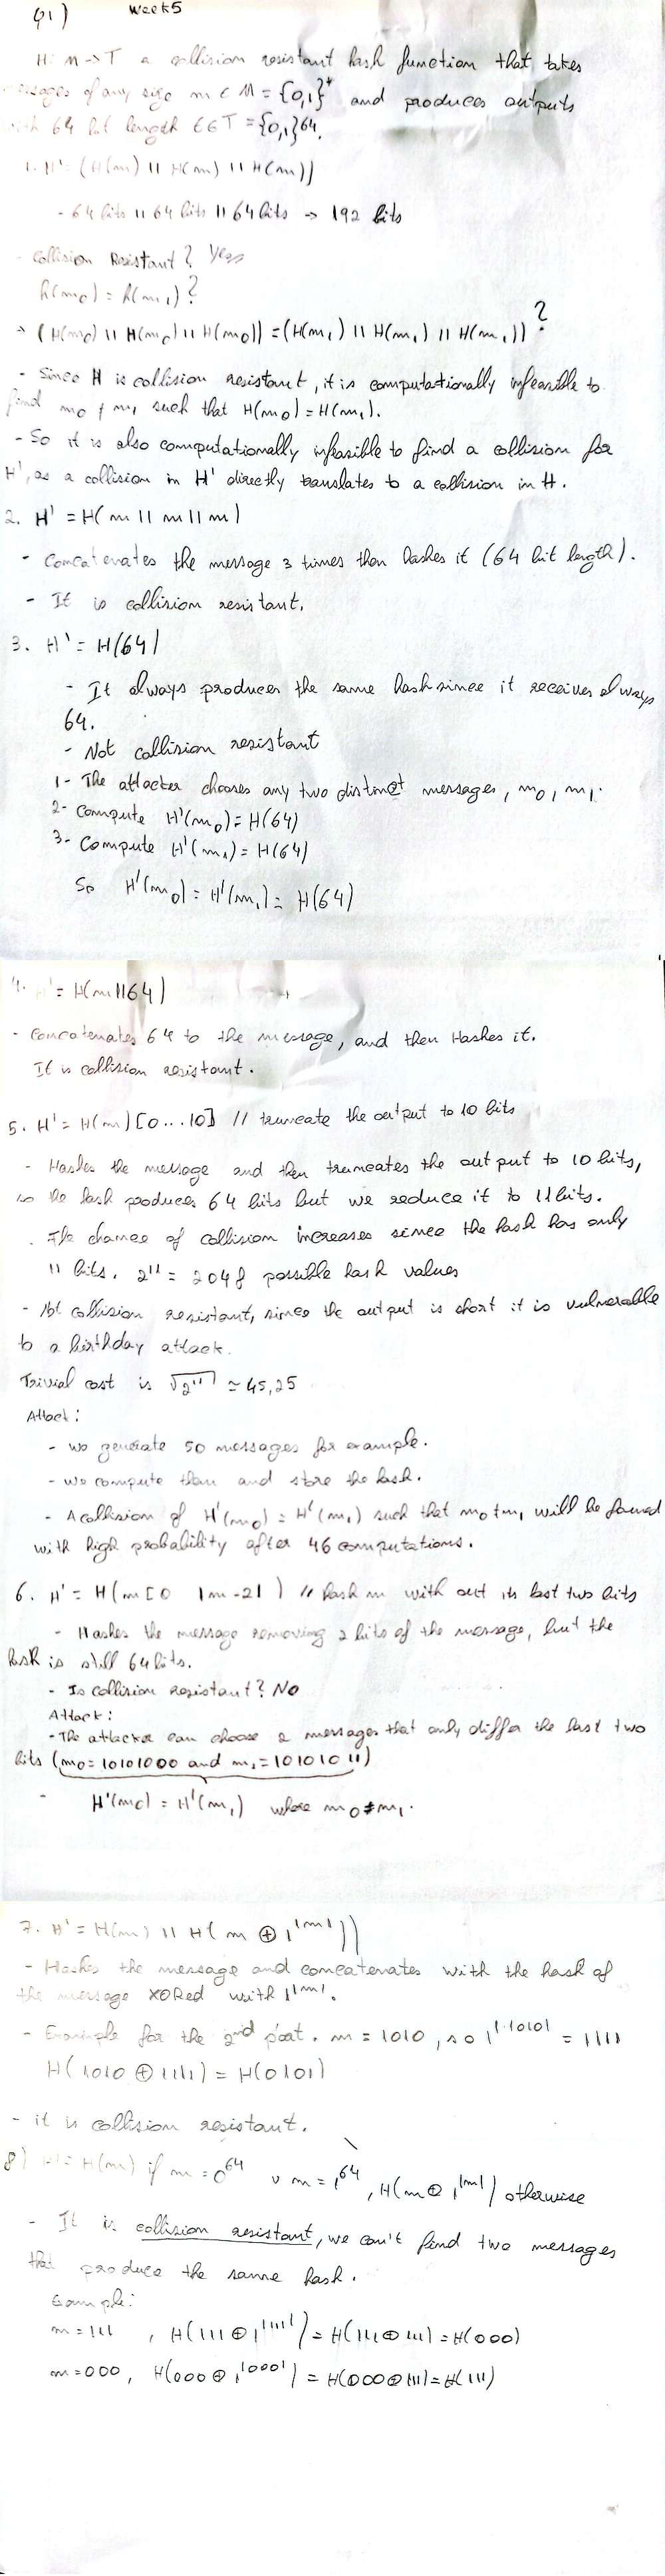 Q1) Week5
H: M->T a collision resistant hash function that takes
messages of any size m ∈ M = {0,1}* and produces outputs
with 64 bit length t∈T = {0,1}64.
1. H' = (H(m) || H(m) || H(m))
- 64 bits || 64 bits || 64 bits -> 192 bits
- Collision Resistant? Yes
h(m0) = h(m1)?
-> (H(m0) || H(m0) || H(m0)) = (H(m1) || H(m1) || H(m1))?
- Since H is collision resistant, it is computationally infeasible to
find m0 ≠ m1 such that H(m0) = H(m1).
- So it is also computationally infeasible to find a collision for
H', as a collision in H' directly translates to a collision in H.
2. H' = H(m || m || m)
- Concatenates the message 3 times then hashes it (64 bit length).
- It is collision resistant.
3. H' = H(64)
- It always produces the same hash since it receives always
64.
- Not collision resistant
1- The attacker chooses any two distinct messages, m0, m1.
2- Compute H'(m0) = H(64)
3- Compute H'(m1) = H(64)
So H'(m0) = H'(m1) = H(64)
4. H' = H(m || 64)
- Concatenates 64 to the message, and then Hashes it.
It is collision resistant.
5. H' = H(m)[0...10] // truncate the output to 10 bits
- Hashes the message and then truncates the output to 10 bits,
so the hash produces 64 bits but we reduce it to 11 bits.
. The chance of collision increases since the hash has only
11 bits. 2^11 = 2048 possible hash values
- Not collision resistant, since the output is short it is vulnerable
to a birthday attack.
Trivial cost is √2^11 ≃ 45,25
Attack:
- we generate 50 messages for example.
- we compute them and store the hash.
- A collision of H'(m0) = H'(m1) such that m0 ≠ m1 will be found
with high probability after 46 computations.
6. H' = H(m[0 |m|-2]) // hash m with out its last two bits
- Hashes the message removing 2 bits of the message, but the
hash is still 64 bits.
- Is collision resistant? NO
Attack:
- The attacker can choose 2 messages that only differ the last two
bits (m0 = 10101000 and m1 = 10101011)
- H'(m0) = H'(m1) where m0 ≠ m1.
7. H' = H(m) || H(m ⊕ 1^|m|))
- Hashes the message and concatenates with the hash of
the message XORed with 1^|m|.
- Example for the 2nd part. m = 1010, so 1^|1010| = 1111
H(1010 ⊕ 1111) = H(0101)
- it is collision resistant.
8) H' = H(m) if m = 0^64 ∨ m = 1^64, H(m ⊕ 1^|m|) otherwise
- It is collision resistant, we can't find two messages
that produce the same hash.
Example:
m = 111 , H(111 ⊕ 1^|111|) = H(111 ⊕ 111) = H(000)
m = 000, H(000 ⊕ 1^|000|) = H(000 ⊕ 111) = H(111)